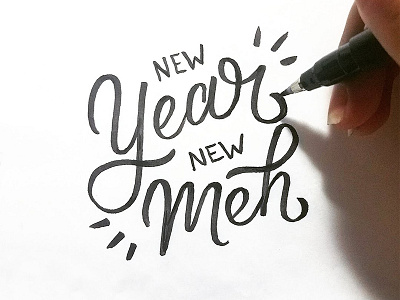 NEW
Year
NEW
Meh